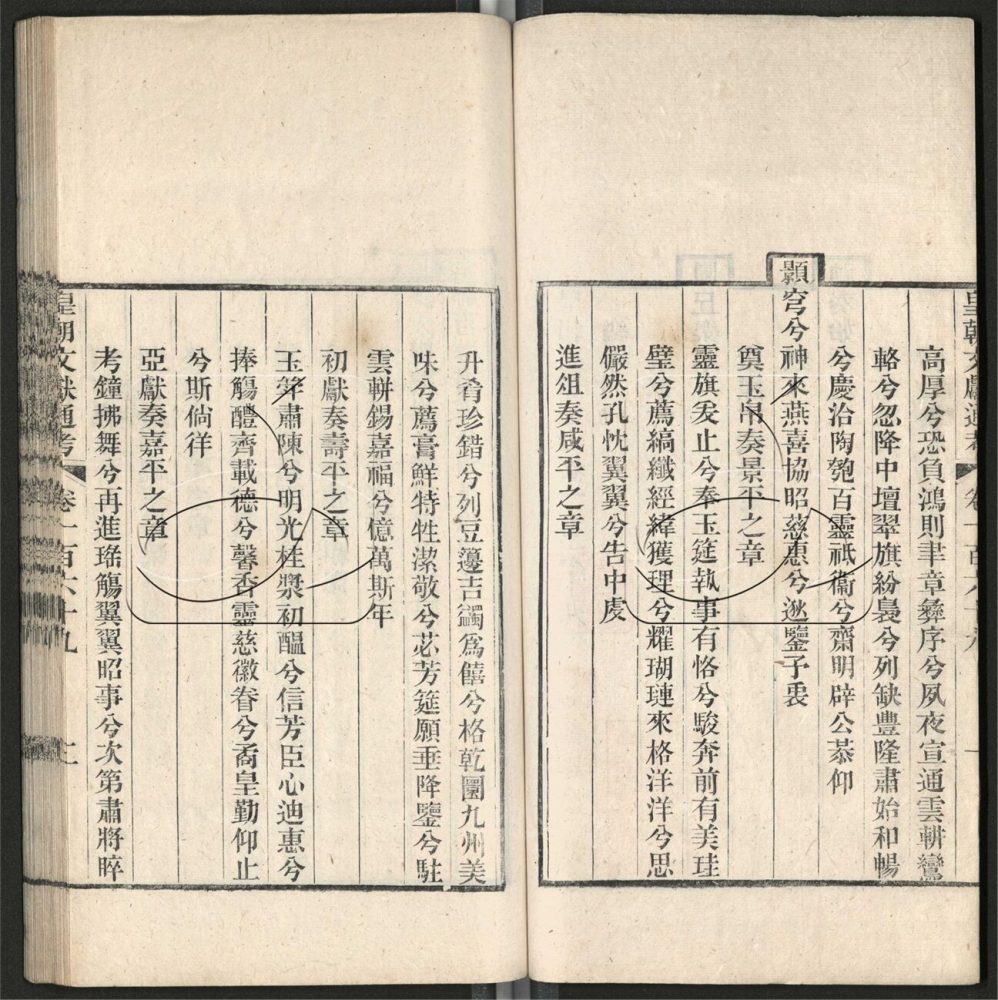 皇朝文獻通考
高厚兮恐負鴻則聿章彝序兮夙夜宣通雲軿鸞
輅兮忽降中壇翠旗紛裊兮列缺豐隆肅始和暢
兮慶洽陶匏百靈祗衞兮齋明辟公恭仰
顥穹兮神來燕喜協昭慈惠兮逖鑒予衷
奠玉帛奏景平之章
靈旗爰止兮奉玉筵執事有恪兮駿奔前有美珪
璧兮薦縞纖經緯獲理兮耀瑚璉來格洋洋兮思
儼然孔忱翼翼兮告中虔
進俎奏咸平之章
升肴珍錯兮列豆籩吉蠲為饎兮格乾圜九州美
味兮薦膏鮮特牲潔敬兮苾芳筵願垂降鑒兮駐
雲軿錫嘉福兮億萬斯年
初獻奏壽平之章
玉斝肅陳兮明光桂漿初醞兮信芳臣心迪惠兮
捧觴醴齊載德兮馨香靈慈徽眷兮矞皇勤仰止
兮斯徜徉
亞獻奏嘉平之章
考鐘拂舞兮再進瑤觴翼翼昭事兮次第肅將睟
皇朝文獻通考 卷一百六十九